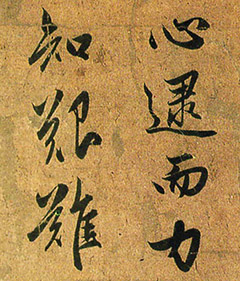 心逮而力
知艱難